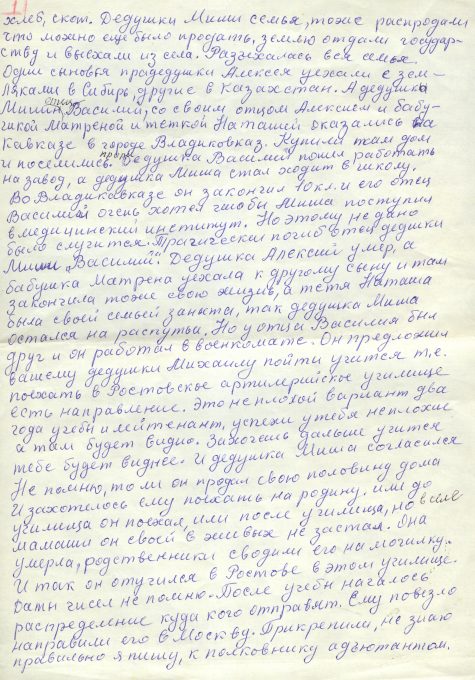 1
хлеб, скот. Дедушки Миши семья, тоже распродали
что можно ещё было продать, землю отдали государ-
ству и выехали из села. Разъехалась вся семья.
Одни сыновья прадедушки Алексея уехали с зем-
ляками в Сибирь, другие в Казахстан. А дедушка
Мишин отец Василий, со своим отцом Алексием и бабу-
шкой Матрёной и тёткой Наташей оказались на
Кавказе в городе Владиковказ. Купили там дом
и поселились. Прадедушка Василий пошёл работать
на завод, а дедушка Миша стал ходит в школу.
Во Владикавказе он закончил 10кл. и его отец
Василий очень хотел чтобы Миша поступил
в медицинский институт. Но этому не дано
было случится. Трагически погиб отец дедушки
Миши "Василий". Дедушка Алексий умер, а
бабушка Матрена уехала к другому сыну и там
закончила тоже свою жизнь, а тётя Наташа
была своей семьёй занята, так дедушка Миша
остался на распутьи. Но у отца Василия был
друг и он работал в военкомате. Он предложил
вашему дедушки Михаилу пойти учится т.е.
поехать в Ростовское артилерийское училище
есть направление. Это не плохой вариант два
года учебы и лейтенант, успехи у тебя не плохие
а там будет видно. Захочешь дальше учится
тебе будет виднее. И дедушка Миша согласился
Не помню, то ли он продал свою половину дома
И захотелось ему поехать на родину, или до
училища он поехал, или после училища, но в селе
мамаши он своей в живых не застал. Она
умерла, родственники сводили его на могилку.
И так он отучился в Ростове в этом училище.
Даты чисел не помню. После учебы началось
распределение куда кого отправят. Ему повезло
направили его в Москву. Прикрепили, не знаю
правильно я пишу, к полковнику адьютантом.